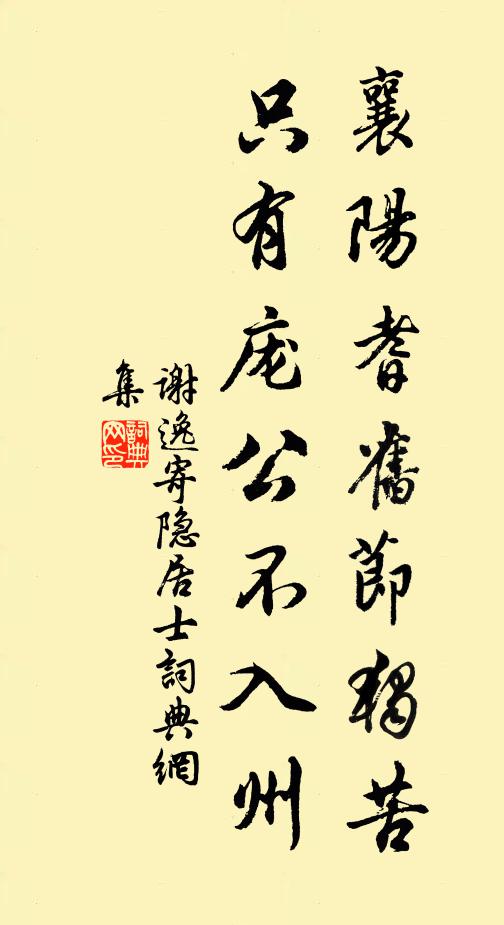 襄陽耆舊節獨苦
只有庞公不入州
謝逸寄隐居士詞典網
集
詞典
网印